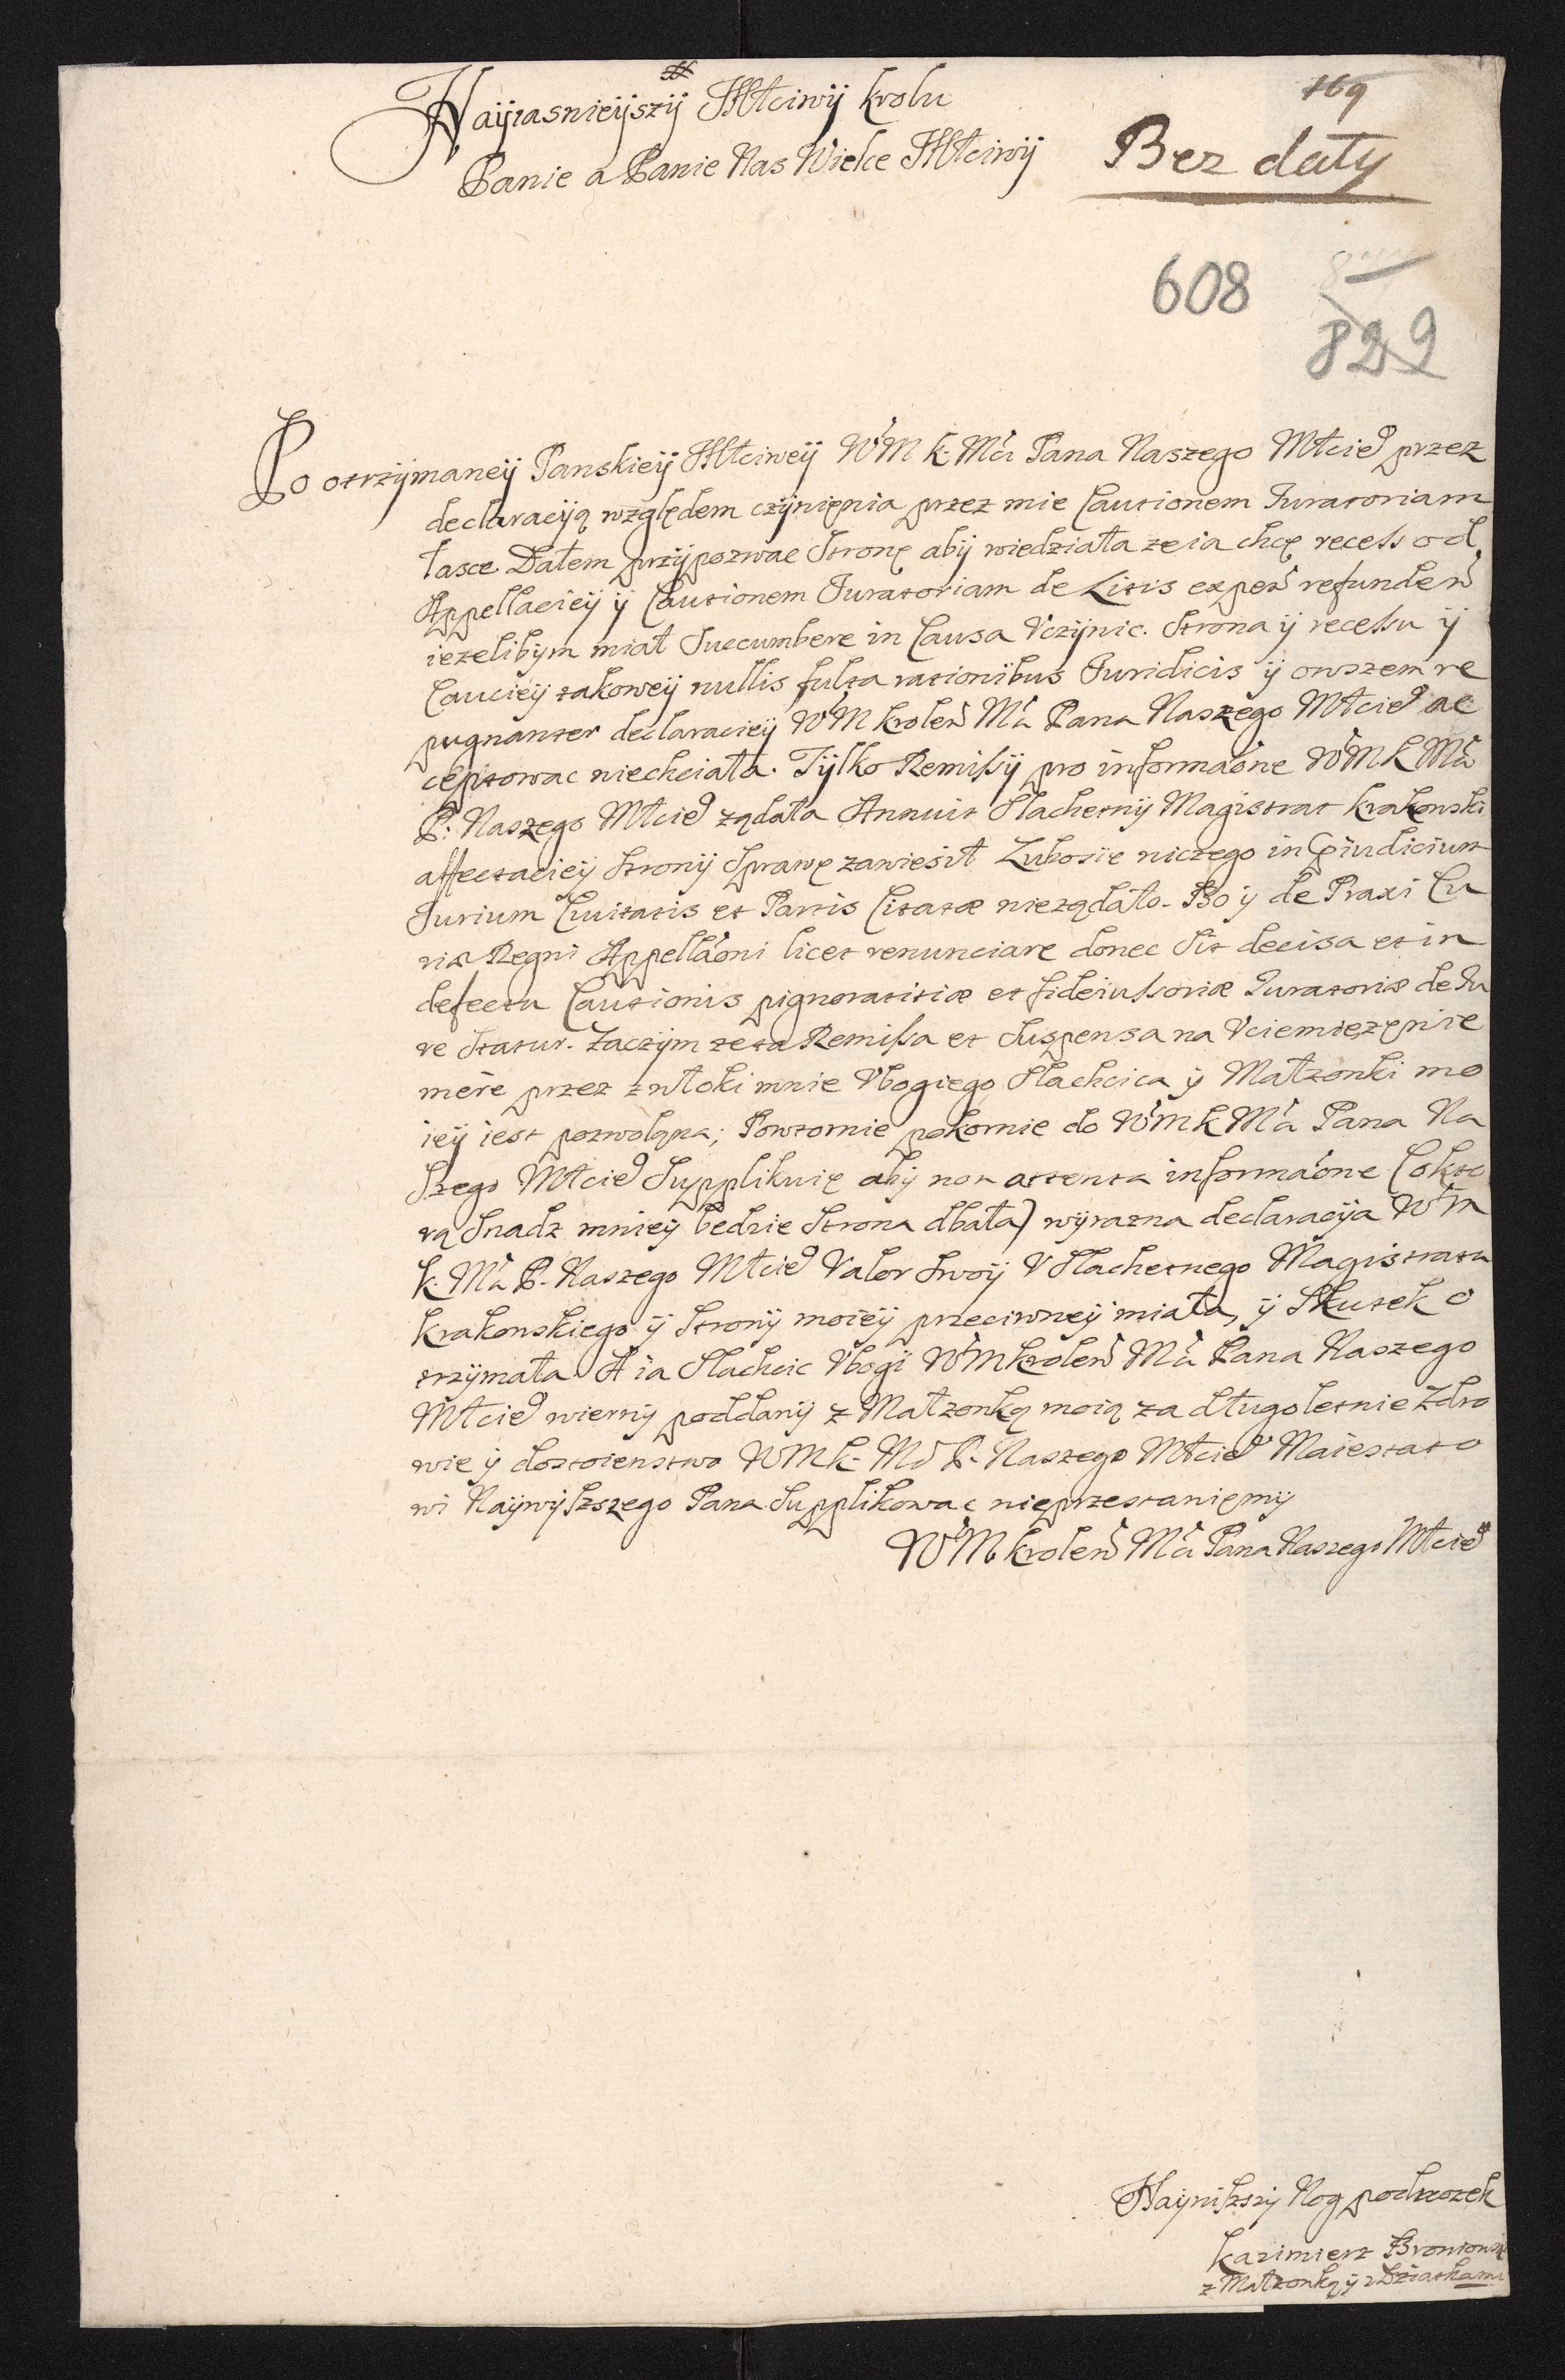 169
Nayiasnieyszÿ Młciwÿ krolu
Panie a Panie Nas Wielce Młciwÿ
Bez daty
608
829
Po otrzÿmaneÿ Panskieÿ Młciweÿ WM k. Mci Pana Naszego Młcieo przez
declaracÿą względem czÿnięnia przez mie Cautionem Iuratoriam
łasce. Dałem przÿpozwac Stronę abÿ wiedziała ze ia chcę recess od
Appellacieÿ ÿ Cautionem Iuratoriam de Litis expen refunden
iezelibÿm miał Succumbere in Causa Vczÿnic. Strona ÿ recessu ÿ
Caucieÿ takoweÿ nullis fulta rationibus Iuridicis ÿ owszem re
pugnanter declaracieÿ WM krolen Mci Pana Naszego Młcieo ac
ceptowac niechciała. Tÿlko Remissÿ pro informaone WM k Mci
P. Naszego Młcieo ządała Annuit Slachetnÿ Magistrat krakowski
affectacieÿ Stronÿ Sprawę zawiesił Lubosie niczego in Piudicium
Iurium Ciuitatis et Partis Citatæ nieządało. Bo ÿ de Praxi Cu
riæ Regni Appellaoni licet renunciare donec Sit decisa et in
defectu Cautionis pignoratitiæ et fideiussoriæ Iuratoriæ de Iu
re Statur. Zaczÿm ze ta Remissa et Suspensa na Vciemięzęnie
mere przez zwłoki mnie Vbogiego Slachcica ÿ Małzonki mo
ieÿ iest pozwolęna; Powtornie pokornie do WM k Mci Pana Na
szego Młcieo Supplikuię abÿ non attenta informaone (o kto
rą Snadz mnieÿ bedzie Strona dbała) wÿrazna declaracÿa WM
k. Mci P. Naszego Młcieo Valor Swoÿ V Slachetnego Magistratu
krakowskiego ÿ Stronÿ moieÿ przeciwneÿ miała, ÿ Skutek o
trzÿmała. A ia Slachcic Vbogi WM krolen Mci Pana Naszego
Młcieo wiernÿ poddanÿ z Małzonką moią za długoletnie Zdro
wie ÿ dostoienstwo WM k. Mci P. Naszego Młcieo Maiestato
wi Naÿwÿszszego Pana Supplikowac nieprzestaniemÿ
WM krolen Mci Pana Naszego Młcieo
Naÿniszszÿ Nog podnozek
kazimierz
z Małzonką ÿ z Dziatkami